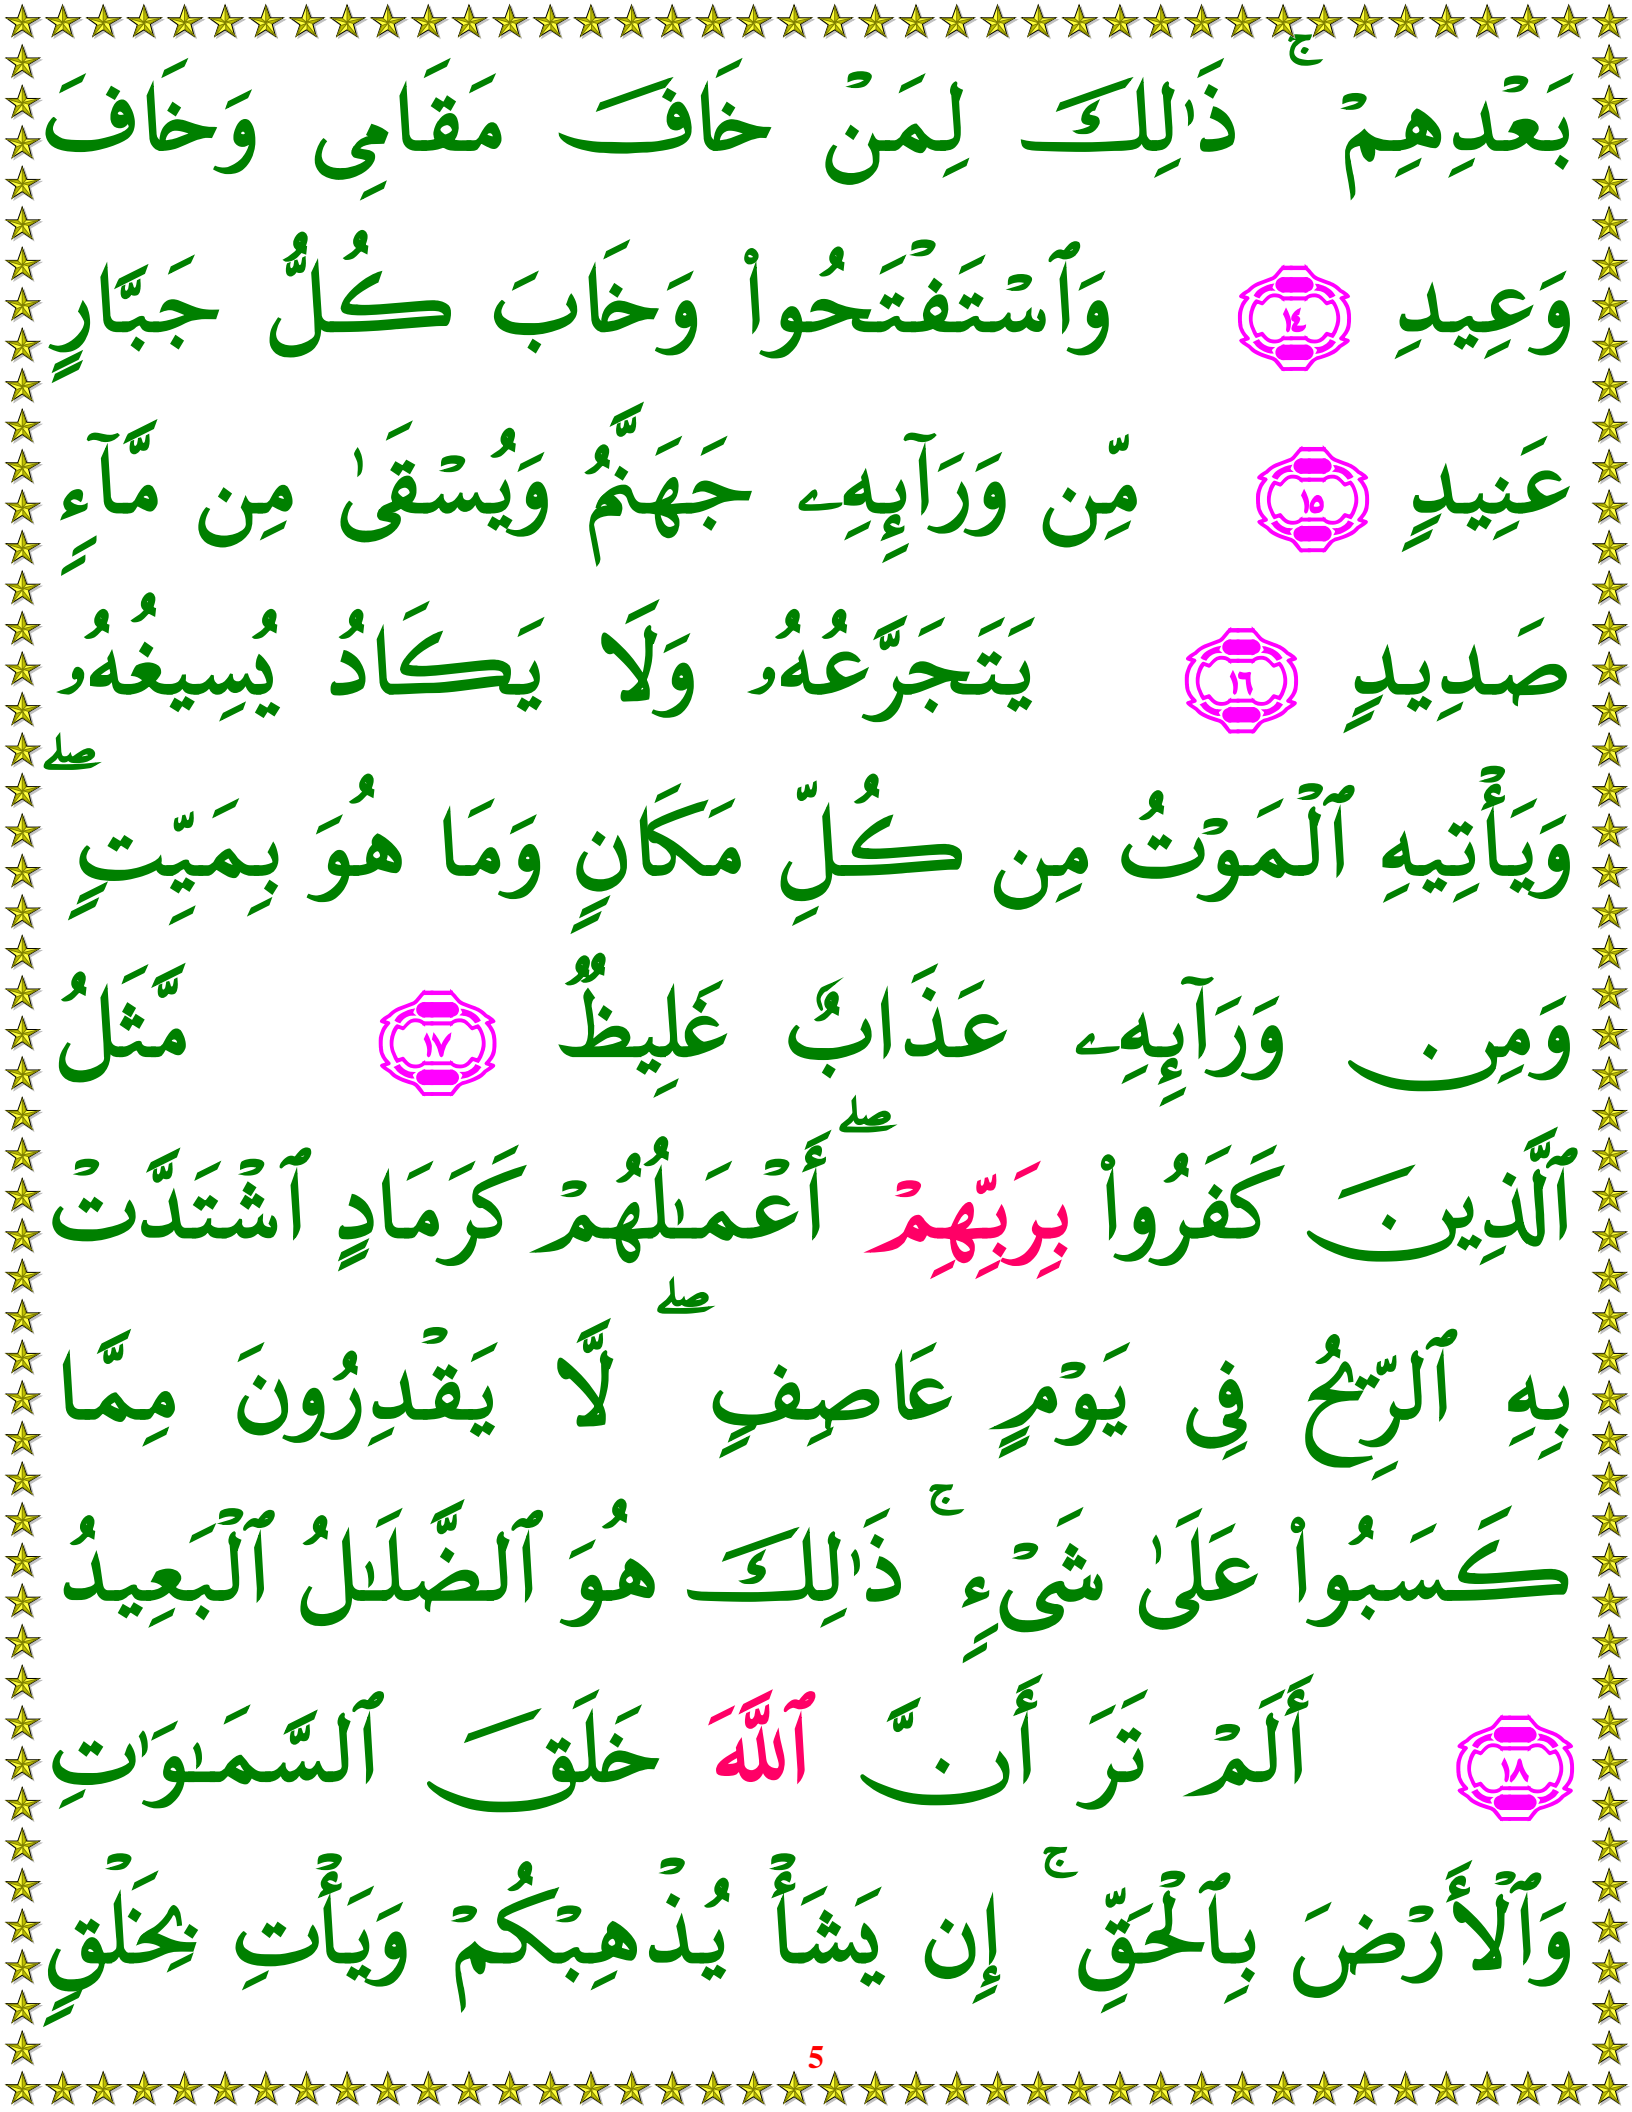 بَعْدِهِمْ ۚ ذَٰلِكَ لِمَنْ خَافَ مَقَامِى وَخَافَ
وَعِيدِ ١٤ وَٱسْتَفْتَحُوا۟ وَخَابَ كُلُّ جَبَّارٍ
عَنِيدٍ ١٥ مِّن وَرَآئِهِۦ جَهَنَّمُ وَيُسْقَىٰ مِن مَّآءٍ
صَدِيدٍ ١٦ يَتَجَرَّعُهُۥ وَلَا يَكَادُ يُسِيغُهُۥ
وَيَأْتِيهِ ٱلْمَوْتُ مِن كُلِّ مَكَانٍ وَمَا هُوَ بِمَيِّتٍ ۖ
وَمِن وَرَآئِهِۦ عَذَابٌ غَلِيظٌ ١٧ مَّثَلُ
ٱلَّذِينَ كَفَرُوا۟ بِرَبِّهِمْ ۖ أَعْمَـٰلُهُمْ كَرَمَادٍ ٱشْتَدَّتْ
بِهِ ٱلرِّيحُ فِى يَوْمٍ عَاصِفٍ ۖ لَّا يَقْدِرُونَ مِمَّا
كَسَبُوا۟ عَلَىٰ شَىْءٍ ۚ ذَٰلِكَ هُوَ ٱلضَّلَـٰلُ ٱلْبَعِيدُ
١٨ أَلَمْ تَرَ أَنَّ ٱللَّهَ خَلَقَ ٱلسَّمَـٰوَٰتِ
وَٱلْأَرْضَ بِٱلْحَقِّ ۚ إِن يَشَأْ يُذْهِبْكُمْ وَيَأْتِ بِخَلْقٍ
5